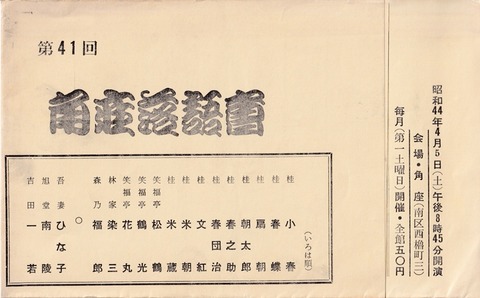 第41回
角座落語會
昭和44年4月5日(土)午後8時45分開演
会場・角座(南区西櫓町三)
毎月(第一土曜日)開催・全館五〇円
(いろは順)
桂 小春
桂 春蝶
桂 扇朝
桂 朝太郎
桂 春之助
桂 春団治
桂 文紅
桂 米蔵
桂 米朝
笑福亭 松鶴
笑福亭 鶴光
笑福亭 花丸
林家 染三
森乃 福郎
○
吾妻ひな子
旭堂南陵
吉田一若